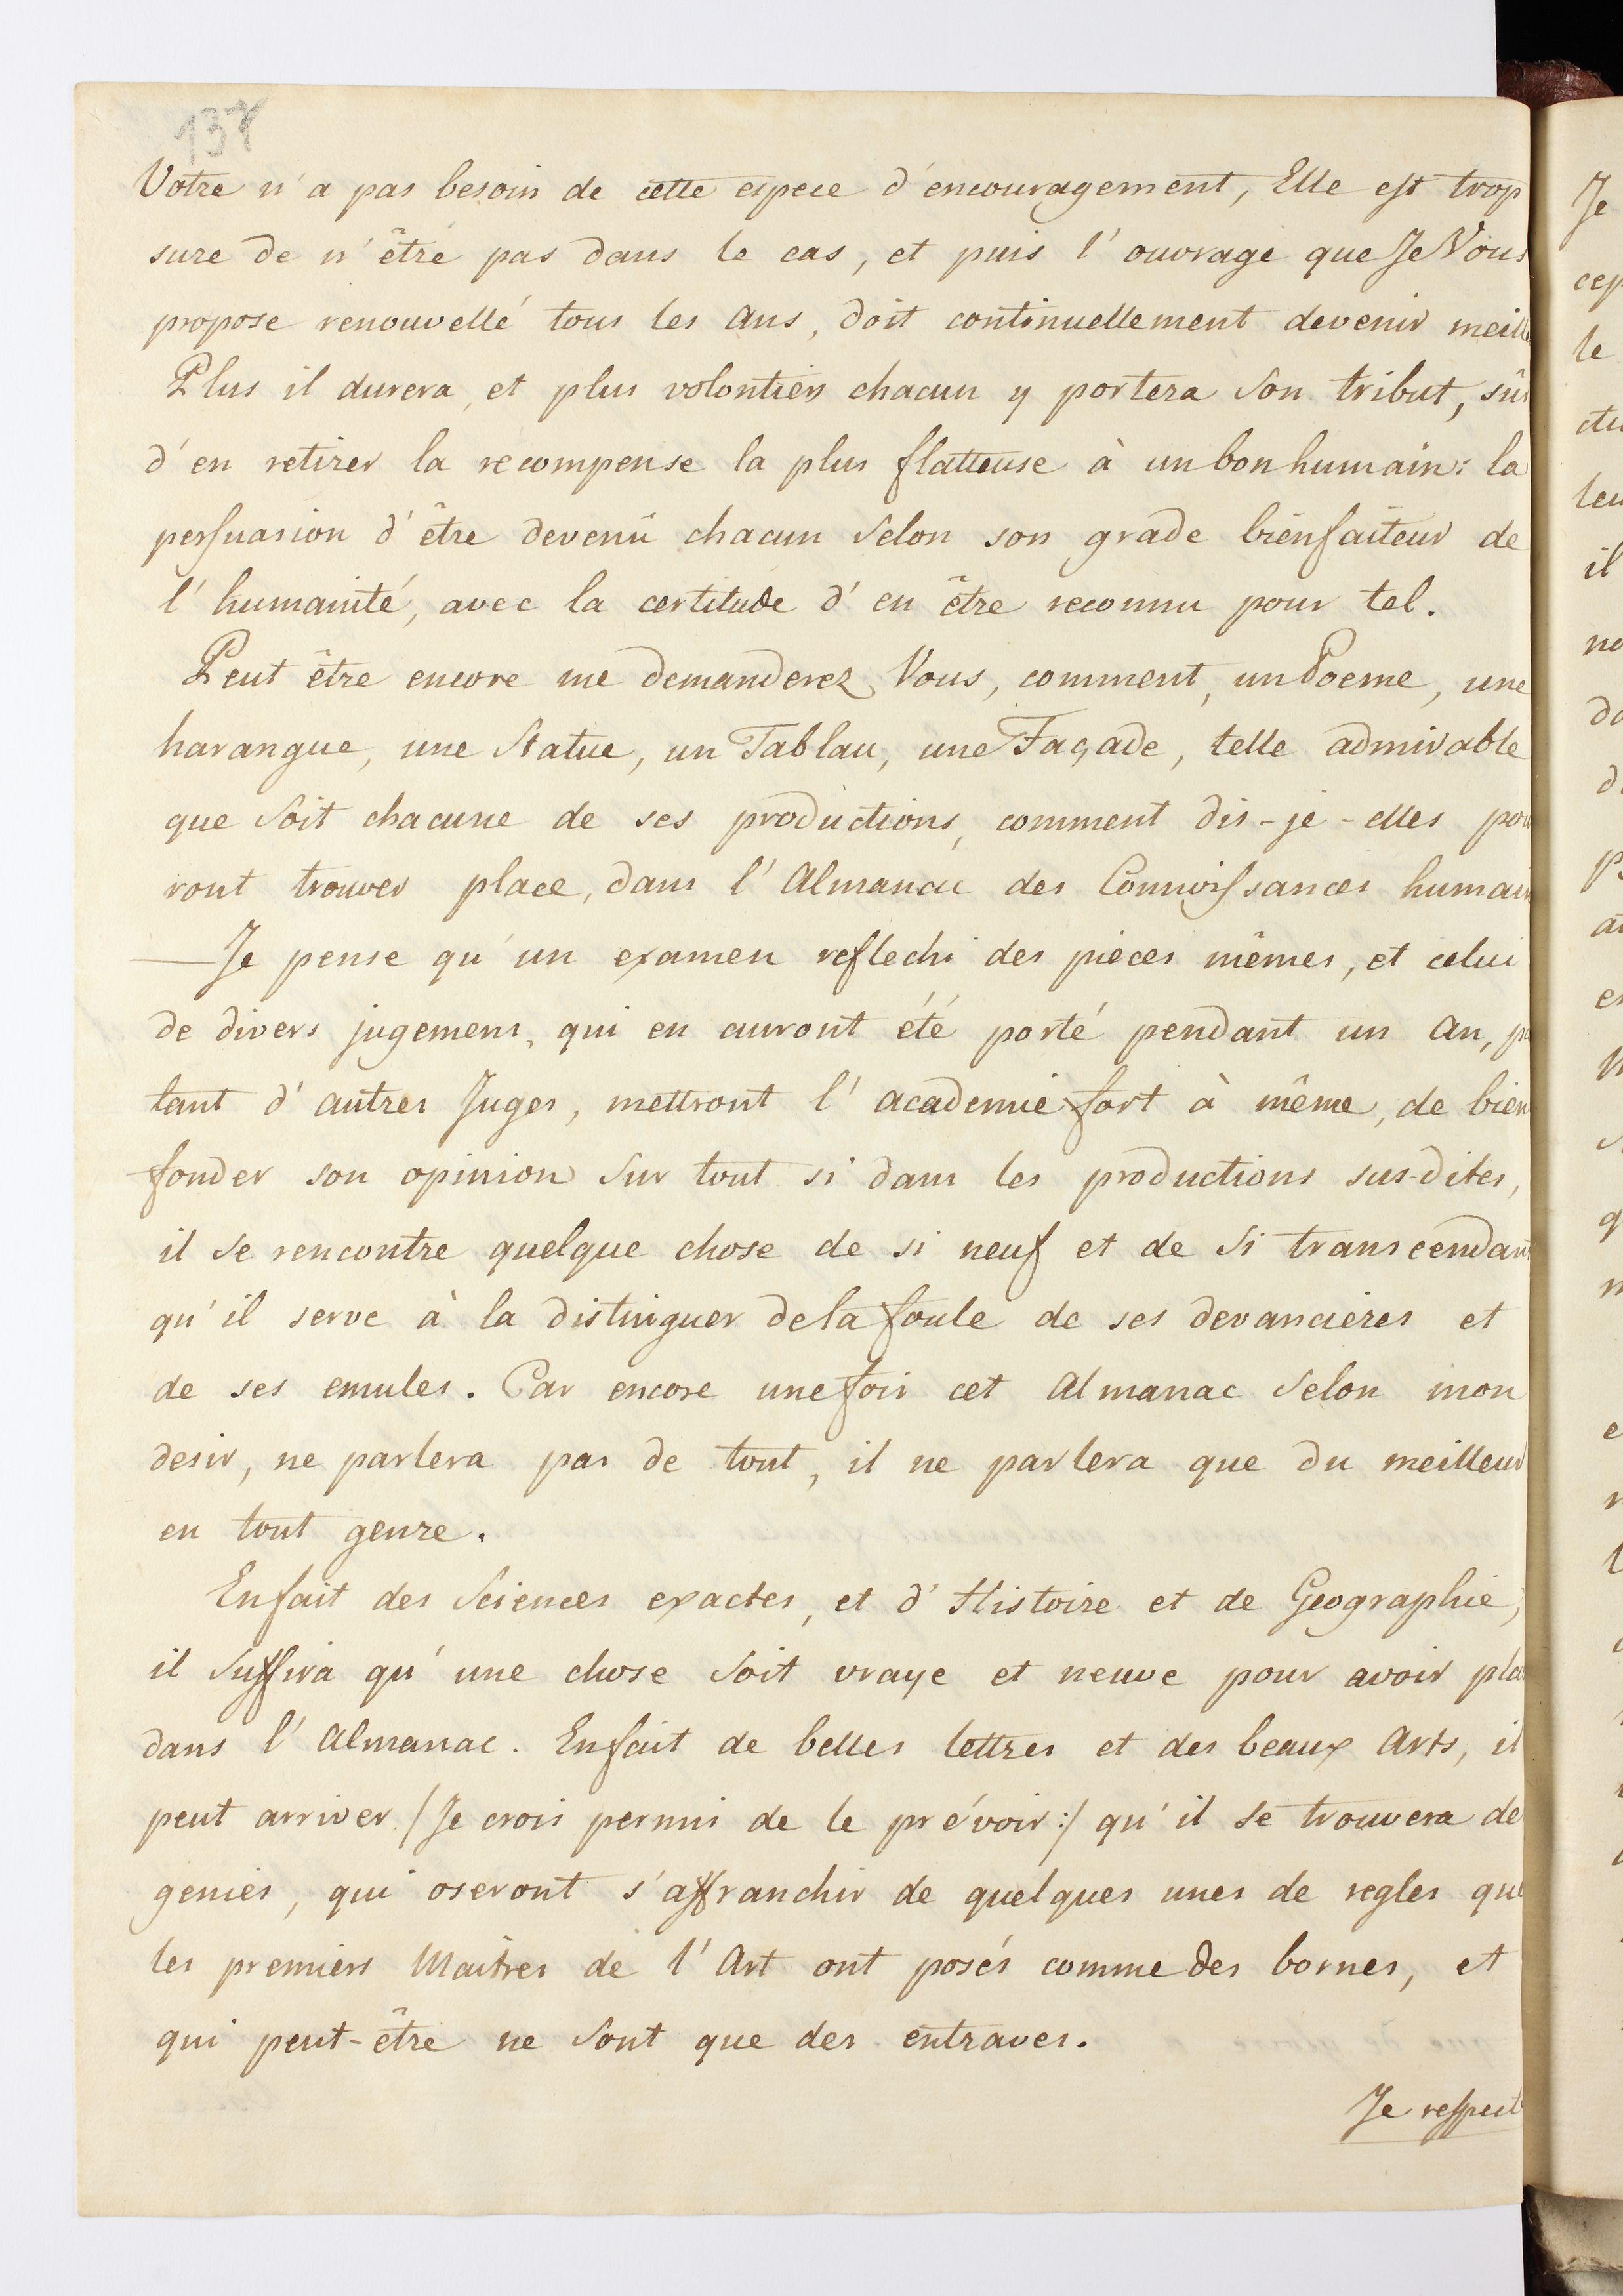 137
Votre n'a pas besoin de cette espece d'encouragement, Elle est trop
sure de n'être pas dans le cas, et puis l'ouvrage que Je Vous
propose renouvellé tous les ans, doit continuellement devenir meill
Plus il durera, et plus volontiers chacun y portera son tribut, sûr
d'en retirer la recompense la plus flatteuse à un bon humain: la
persuasion d'être devenû chacun selon son grade bienfaiteur de
l'humanité, avec la certitude d'en être reconnu pour tel.
Peut être encore me demanderez Vous, comment, un Poeme, une
harangue, une Statue, un Tablau, une Façade, telle admirable
que soit chacune de ses productions, comment dis-je-elles pou
ront trouver place, dans l'Almanac des Connoissances humain
—Je pense qu'un examen reflechi des pieces mêmes, et celui
de divers jugemens, qui en auront été porté pendant un an, pa
tant d'autres Juges, mettront l'academie fort à même, de bien
fonder son opinion sur tout si dans les productions sus-dites,
il se rencontre quelque chose de si neuf et de si transcendant
qu'il serve à la distinguer de la foule de ses devancieres et
de ses emules. Car encore une fois cet Almanac selon mon
desir, ne parlera pas de tout, il ne parlera que du meilleur
en tout genre.
En fait des Sciences exactes, et d'Histoire et de Geographie,
il suffira qu'une chose soit vraye et neuve pour avoir pla
dans l'Almanac. En fait de belles lettres et des beaux Arts, il
peut arriver /Je crois permis de le prévoir:/ qu'il se trouvera de
genies, qui oseront s'affranchir de quelques unes de regles que
les premiers Maitres de l'Art ont posés comme des bornes, et
qui peut-être ne sont que des entraves.
Je respect
Je
cep
le
leu
il